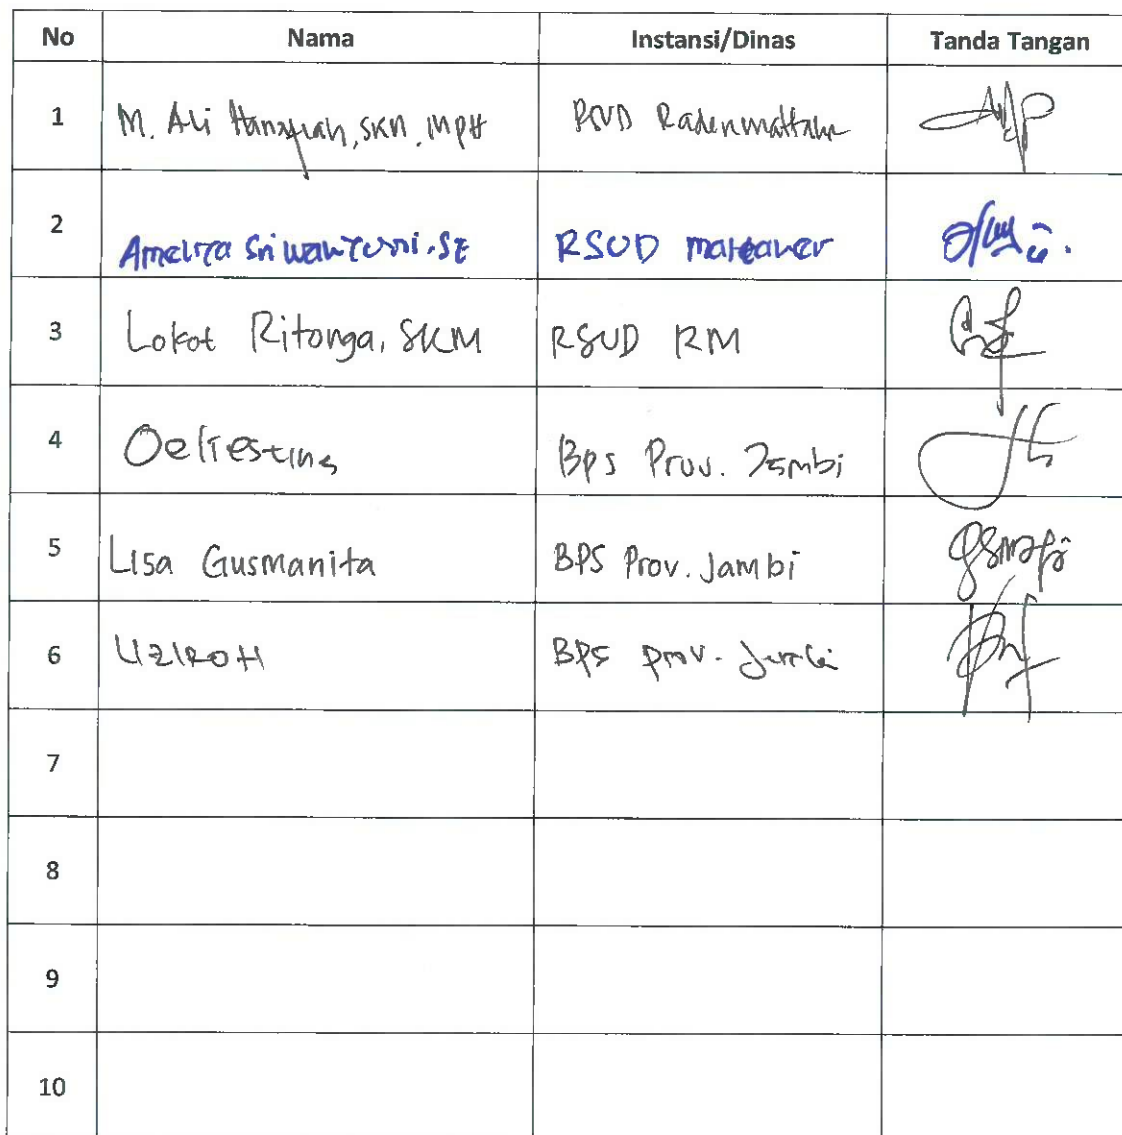 No Nama Instansi/Dinas Tanda Tangan
1 M. Ali Hanafiah, SKM, MPH RSUD Radenmattaher
2 Sri SE RSUD
3 Lokot Ritonga, SKM RSUD RM
4 BPS Prov. Jambi
5 Lisa Gusmanita BPS Prov. Jambi
6 UZIROH BPS Prov. Jambi
7
8
9
10